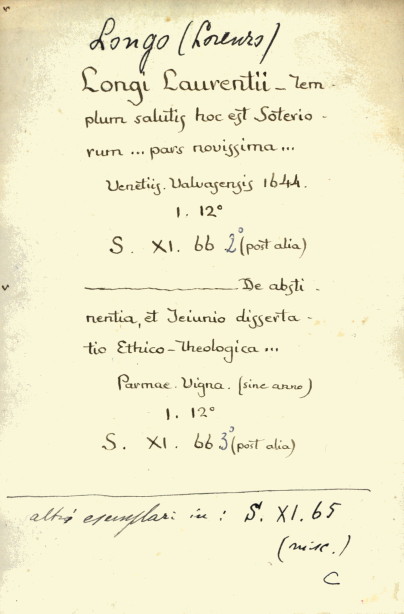 Longo (Lorenzo)
Longi Laurentii _ Tem-
plum salutis hoc est Soterio-
rum ... pars novissima ...
Venetiis. Valvasensis 1644.
1. 12°
S. XI. 66 2° (post alia)
———————— De absti-
nentia, et Ieiunio disserta-
tio Ethico-Theologica ...
Parmae. Vigna. (sine anno)
1. 12°
S. XI. 66 3° (post alia)
altri esemplari in: S. XI. 65
(misc.)
C